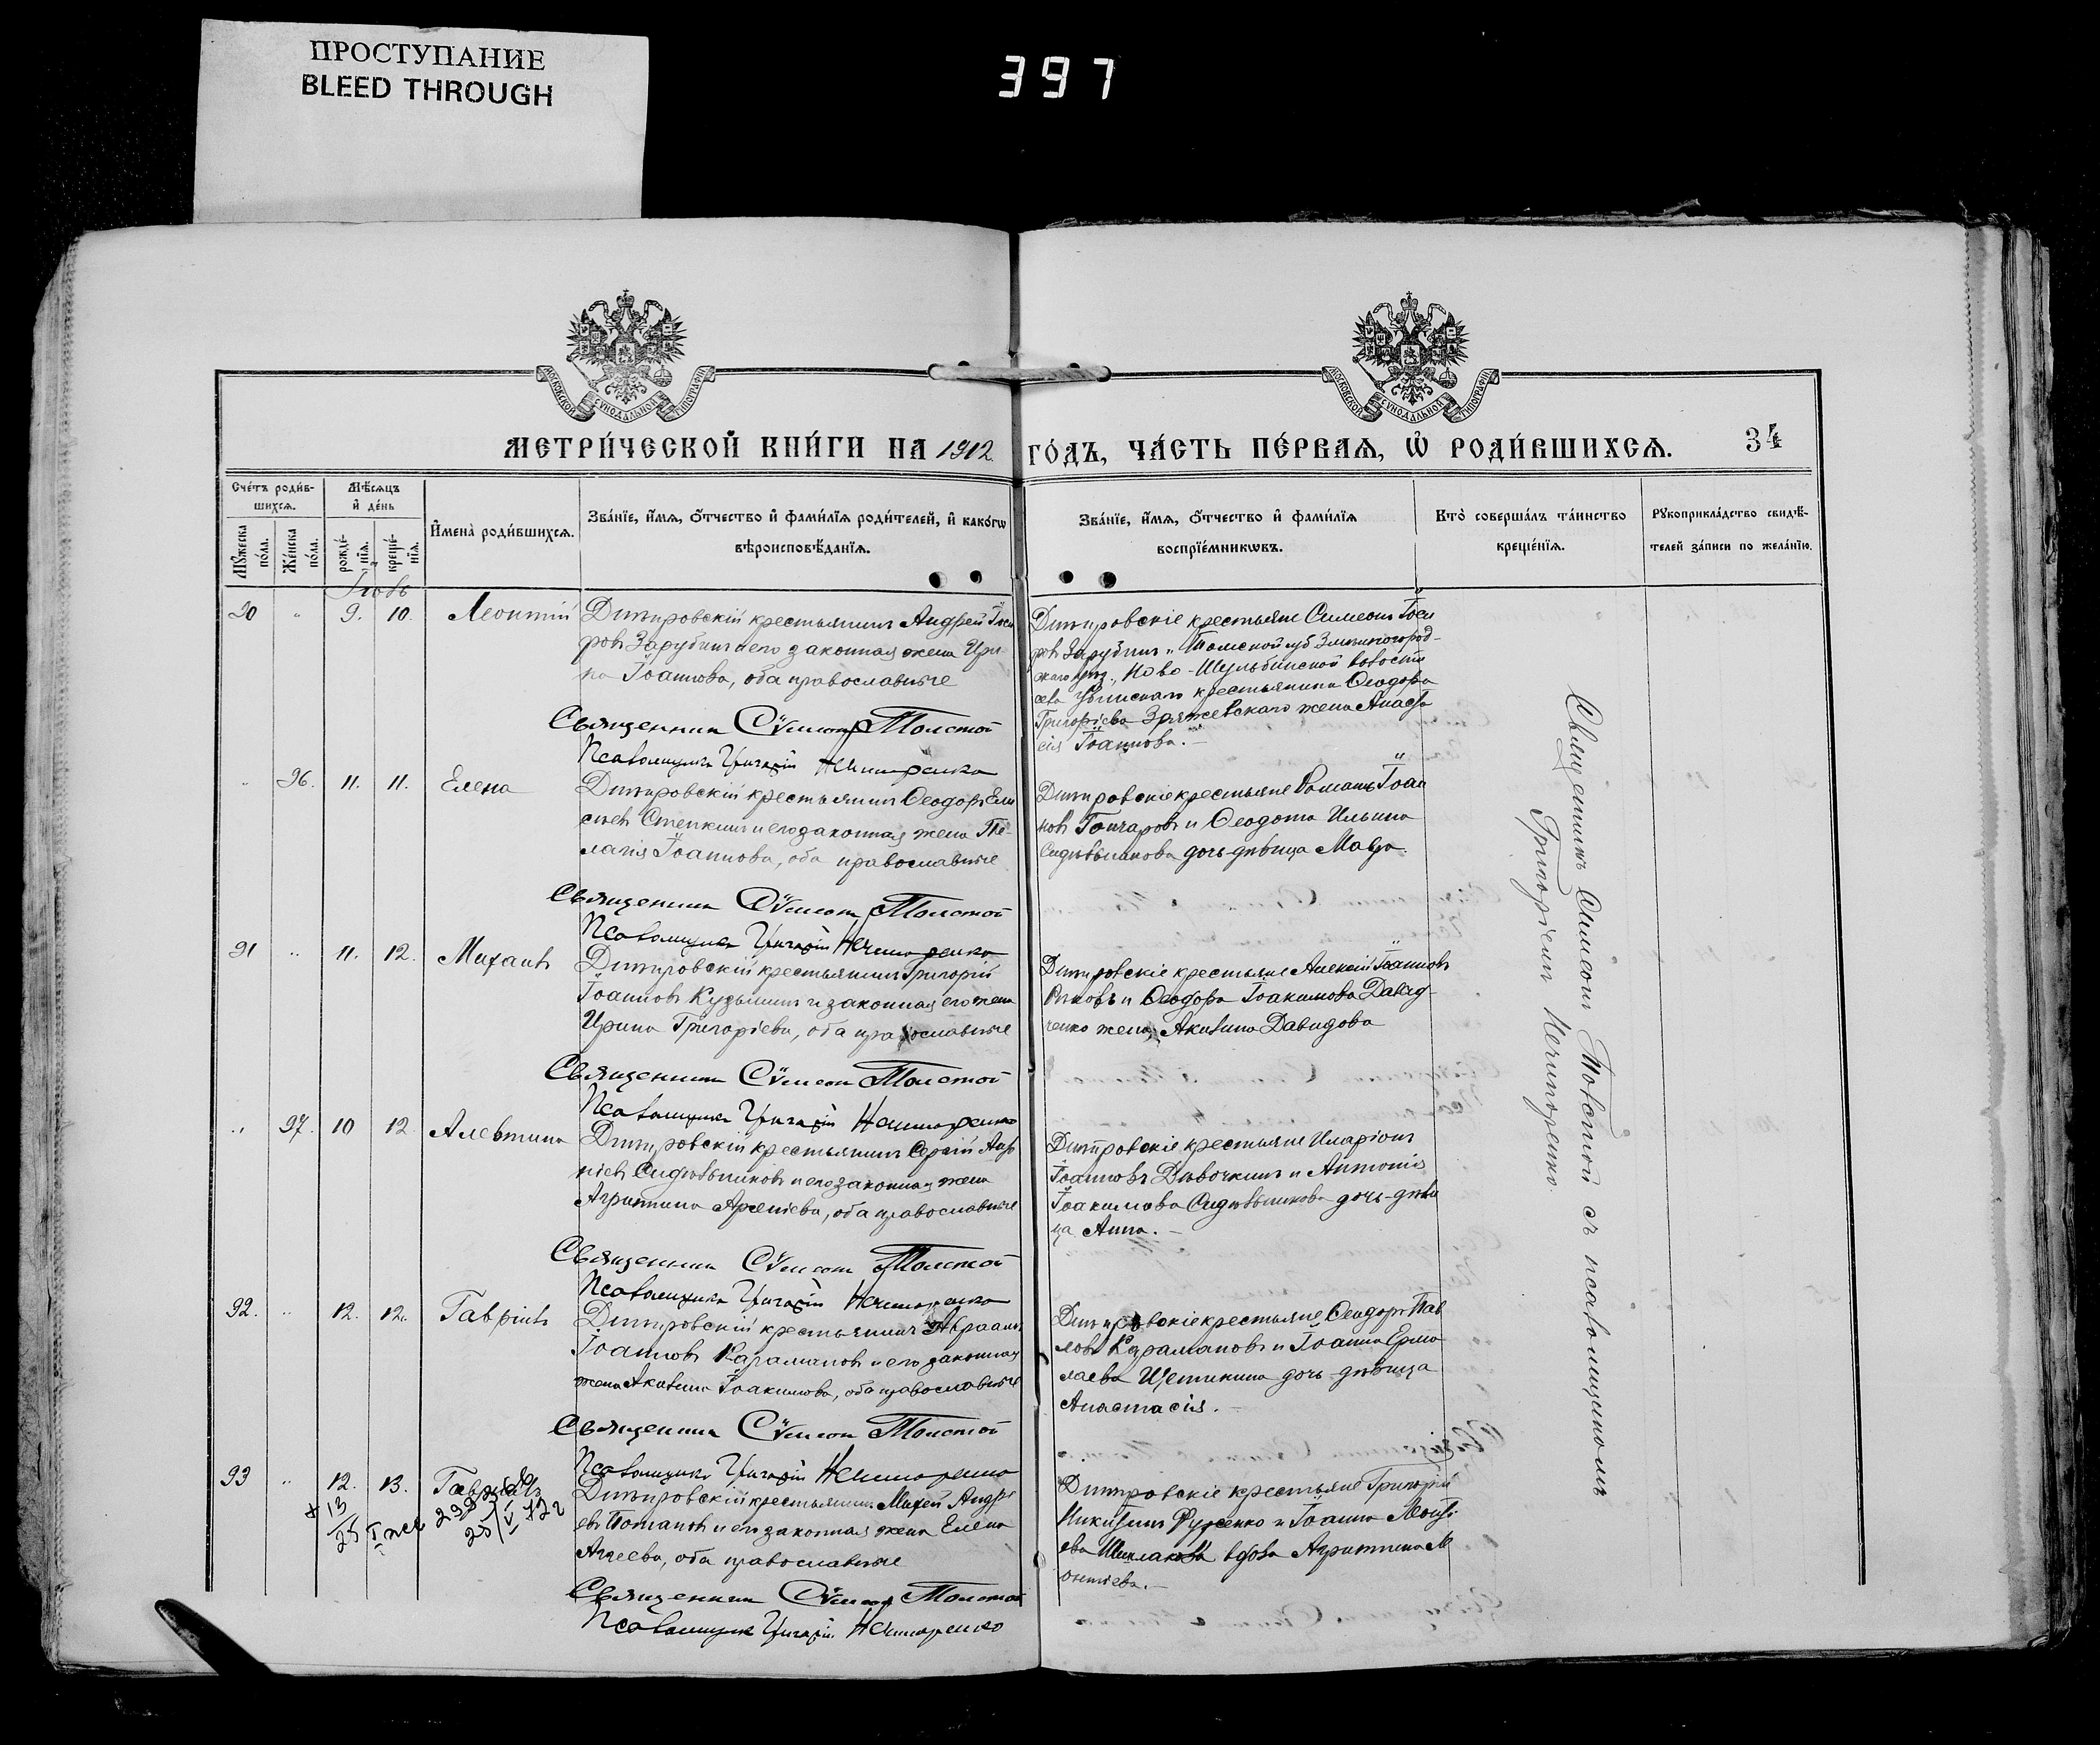 ПРОСТУПАНИЕ
BLEED THROUGH
397
МОСКОВСКОЙ СѴНОДАЛЬНОЙ ТИПОГРАФІИ
МОСКОВСКОЙ СѴНОДАЛЬНОЙ ТИПОГРАФІИ
МЕТРИ́ЧЕСКОЙ КНИ́ГИ НА 1912
ГО́ДЪ, ЧА́СТЬ ПЕ́РВАѦ, Ѡ҆ РОДИ́ВШИХСѦ. 34
Сче́тъ роди́в-
шихсѧ.
Мѹ́жеска по́ла.
Же́нска по́ла.
Мѣ́сѧцъ
и҆ де́нь
рожде́-нїѧ.
креще́-нїѧ.
И҆мена̀ роди́вшихсѧ.
Зва́нїе, и҆́мѧ, ѻ҆́тчество и҆ фами́лїѧ роди́телей, и҆ како́гѡ
вѣроисповѣ́данїѧ.
Зва́нїе, и҆́мѧ, ѻ҆́тчество и҆ фами́лїѧ
воспрїе́мникѡвъ.
Кто̀ соверша́лъ та́инство
креще́нїѧ.
Рѹкоприкла́дство свидѣ́-
телей за́писи по жела́нїю.
90 " 9. 10. Леонтій
Дмитровскій крестьянинъ Андрей
ровъ Зарубинъ и его законная жена Ири-
на Іоаннова, оба православные
Священник Сѵмеон Толстой
Псаломщикъ Григорій Нечипоренко
Дмитровскіе крестьяне Симеонъ
ровъ Зарубинъ и Томской губ. Змеиногород-
скаго уѣз., Ново-Шульбинской волости
села Убинскаго крестьянина Ѳеодора
Григоріева жена Анаста
сія Іоаннова.—
" 96. 11. 11. Елена
Дмитровскій крестьянинъ Ѳеодоръ Ели
сеевъ Степкинъ и его законная жена Пе-
лагія Іоаннова, оба православные
Священник Сѵмеон Толстой
Псаломщикъ Григорій Нечипоренко
Дмитровскіе крестьяне Романъ Іоан
новъ Гончаровъ и Ѳеодота Ильина
Сидѣльникова дочь-дѣвица Мавра.
91 " 11. 12. Михаилъ
Дмитровскій крестьянинъ Григорій
Іоанновъ Кузьминъ и законная его жена
Ирина Григоріева, оба православные
Священник Сѵмеон Толстой
Псаломщикъ Григорій Нечипоренко
Дмитровскіе крестьяне Алексій Іоанновъ
и Ѳеодора Іоакимова Давид-
ченко жена, Акилина Давидова
" 97. 10 12. Алевтина
Дмитровскій крестьянинъ Сергій Андр
Сидѣльниковъ и его законная жена
Агриппина Арсеніева, оба православные
Священник Сѵмеон Толстой
Псаломщикъ Григорій Нечипоренко
Дмитровскіе крестьяне Иларіонъ
Іоанновъ Дѣвочкинъ и Антонія
Іоакимова Сидѣльникова дочь-дѣви
ца Анна.—
92. " 12. 12. Гавріилъ
Дмитровскій крестьянинъ Авраамъ
Іоанновъ Карамановъ и его законная
жена Акилина Іоакимова, оба православные
Священник Сѵмеон Толстой
Псаломщикъ Григорій Нечипоренко
Дмитровскіе крестьяне, Ѳеодоръ Пав
ловъ Карамановъ и Іоанна Ермо
лаева Щетинина дочь-дѣвица
Анастасія.—
93 " 12. 13. Гавріилъ
Дмитровскій крестьянинъ Михей Андре
евъ Потаповъ и его законная жена Елена
Агеева, оба православные
Священник Сѵмеон Толстой
Псаломщик Григорій Нечипоренко
Дмитровскіе крестьяне Григорій
Никитинъ Руденко и Іоанна
ева вдова Агриппина
онтіева.—
Священникъ Симеонъ Толстой съ псаломщикомъ
Григоріемъ Нечипоренко.